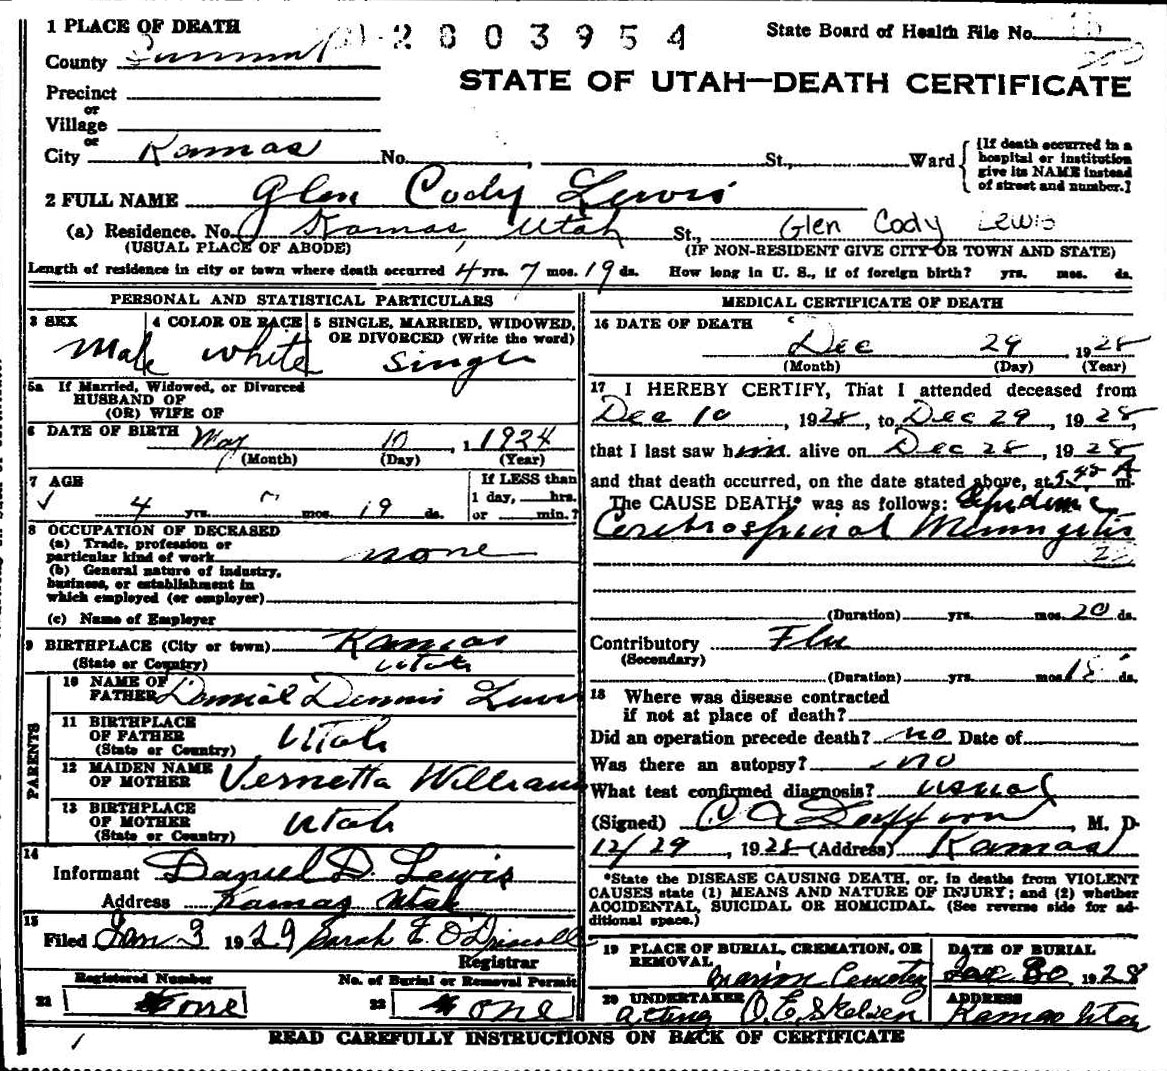 1 PLACE OF DEATH
2803954
State Board of Health File No.
County Summit
STATE OF UTAH—DEATH CERTIFICATE
Precinct
or
Village
or
City Kamas No. , St., Ward
[If death occurred in a
hospital or institution
give its NAME instead
of street and number.]
2 FULL NAME Glen Cody Lewis
(a) Residence. No. Kamas, Utah St., Glen Cody Lewis
(USUAL PLACE OF ABODE) (IF NON-RESIDENT GIVE CITY OR TOWN AND STATE)
Length of residence in city or town where death occurred 4 yrs. 7 mos. 19 ds. How long in U. S., if of foreign birth? yrs. mos. ds.
PERSONAL AND STATISTICAL PARTICULARS
3 SEX
Male
4 COLOR OR RACE
white
5 SINGLE, MARRIED, WIDOWED,
OR DIVORCED (Write the word)
Single
5a If Married, Widowed, or Divorced
HUSBAND OF
(OR) WIFE OF
6 DATE OF BIRTH May 10, 1924
(Month) (Day) (Year)
7 AGE
4 yrs. mos. 19 ds.
If LESS than
1 day, hrs.
or min.?
8 OCCUPATION OF DECEASED
(a) Trade, profession or
particular kind of work none
(b) General nature of industry,
business, or establishment in
which employed (or employer)
(c) Name of Employer
9 BIRTHPLACE (City or town) Kamas
(State or Country) Utah
PARENTS
10 NAME OF
FATHER Daniel Dennis Lewis
11 BIRTHPLACE
OF FATHER
(State or Country) Utah
12 MAIDEN NAME
OF MOTHER Vernetta Williams
13 BIRTHPLACE
OF MOTHER
(State or Country) Utah
14
Informant Daniel D. Lewis
Address Kamas Utah
15
Filed Jan 3 1929 Sarah E. O'Driscoll
Registrar
Registered Number
21 one
No. of Burial or Removal Permit
22 one
MEDICAL CERTIFICATE OF DEATH
16 DATE OF DEATH
Dec 29 1928
(Month) (Day) (Year)
17 I HEREBY CERTIFY, That I attended deceased from
Dec 10, 1928, to Dec 29, 1928,
that I last saw him alive on Dec 28, 1928
and that death occurred, on the date stated above, at 5.45 A m.
The CAUSE DEATH* was as follows: Epidemic
Cerebrospinal Meningitis
(Duration) yrs. mos. 20 ds.
Contributory Flu
(Secondary)
(Duration) yrs. mos. 18 ds.
18 Where was disease contracted
if not at place of death?
Did an operation precede death? no Date of
Was there an autopsy? no
What test confirmed diagnosis? usual
(Signed) C A , M. D.
12/29, 1928 (Address) Kamas
*State the DISEASE CAUSING DEATH, or, in deaths from VIOLENT
CAUSES state (1) MEANS AND NATURE OF INJURY; and (2) whether
ACCIDENTAL, SUICIDAL OR HOMICIDAL. (See reverse side for ad-
ditional space.)
19 PLACE OF BURIAL, CREMATION, OR
REMOVAL
Marion Cemetery
DATE OF BURIAL
30 1928
20 UNDERTAKER
Acting O. E. Skelsen
ADDRESS
Kamas Utah
READ CAREFULLY INSTRUCTIONS ON BACK OF CERTIFICATE